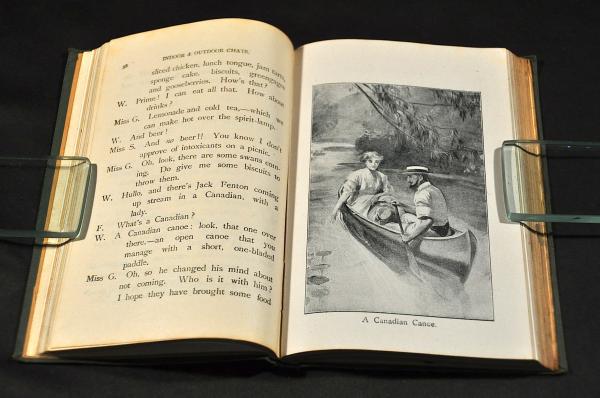 INDOOR & OUTDOOR CHATS.
sliced chicken, lunch tongue, jam tarts,
sponge cake, biscuits, greengages
and gooseberries. How's that?
W. Prime! I can eat all that. How about
drinks?
Miss G. Lemonade and cold tea,—which we
can make hot over the spirit-lamp.
W. And beer!
Miss S. And no beer!! You know I don't
approve of intoxicants on a picnic.
Miss G. Oh, look, there are some swans com-
ing. Do give me some biscuits to
throw them.
W. Hullo, and there's Jack Fenton coming
up stream in a Canadian, with a
lady.
F. What's a Canadian?
W. A Canadian canoe: look, that one over
there,—an open canoe that you
manage with a short, one-bladed
paddle.
Miss G. Oh, so he changed his mind about
not coming. Who is it with him?
I hope they have brought some food
A Canadian Canoe.